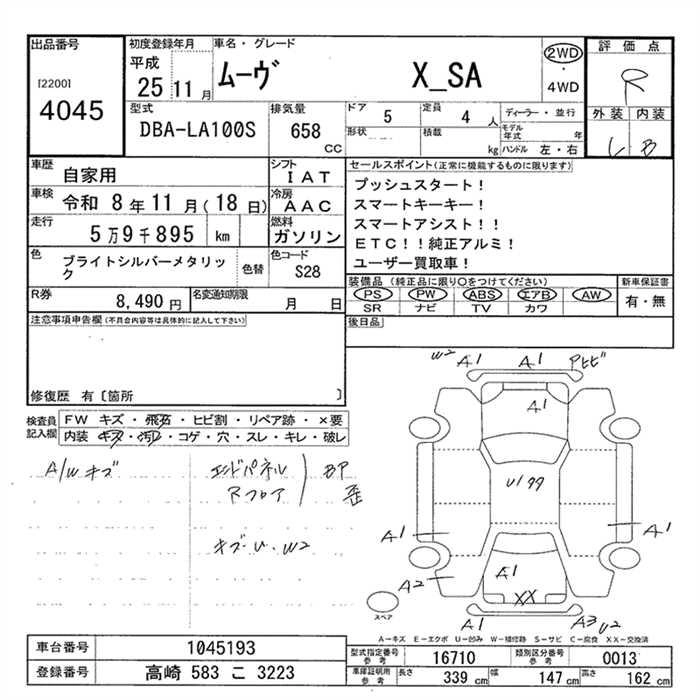 出品番号
[2200]
4045
初度登録年月
平成
25 11 月
車名・グレード
ムーヴ X_SA
2WD
・
4WD
評価点
R
外装 内装
B
型式
DBA-LA100S
排気量
658
CC
ドア 5
定員 4 人
形状
積載 kg
ディーラー・並行
モデル年式 年
ハンドル 左・右
車歴 自家用
シフト IAT
車検 令和 8年11月(18日)
冷房 AAC
走行 5万9千895 km
燃料 ガソリン
色 ブライトシルバーメタリック
色替
色コード S28
R券 8,490 円
名変通知期限 月 日
セールスポイント(正常に機能するものに限ります)
プッシュスタート！
スマートキーキー！
スマートアシスト！！
ETC！！純正アルミ！
ユーザー買取車！
装備品 (純正品に限り〇をつけてください)
PS PW ABS エアB AW
SR ナビ TV カワ
新車保証書
有・無
後日品
注意事項申告欄(不具合内容等は具体的に記入して下さい)
修復歴 有〔箇所 〕
検査員記入欄
FW キズ・飛石・ヒビ割・リペア跡・×要
内装 キズ・汚レ・コゲ・穴・スレ・キレ・破レ
A/W キズ
エンドパネル
Rフロア
BP
歪
キズ・U・W2
W2 A1 A1 Pヒビ
A1
U1 99
A1 A1
A2 A1
XX
A1 A3 U2
スペア
A―キズ E―エクボ U―凹み W―補修跡 S―サビ C―腐食 XX―交換済
車台番号 1045193
登録番号 高崎 583 こ 3223
型式指定番号 参考 16710
類別区分番号 参考 0013
車庫証明用 参考 長さ 339 cm 幅 147 cm 高さ 162 cm